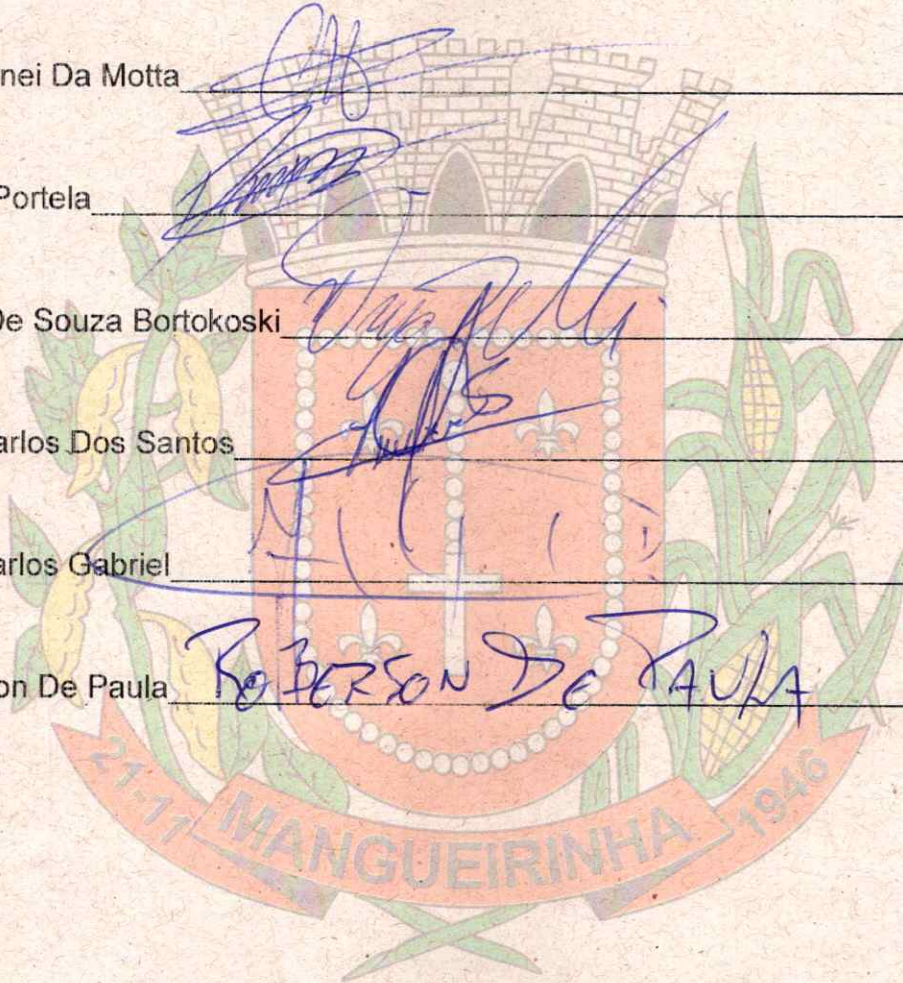 nei Da Motta
Portela
De Souza Bortokoski
arlos Dos Santos
arlos Gabriel
on De Paula ROBERSON DE PAULA
21-11 MANGUEIRINHA 1946